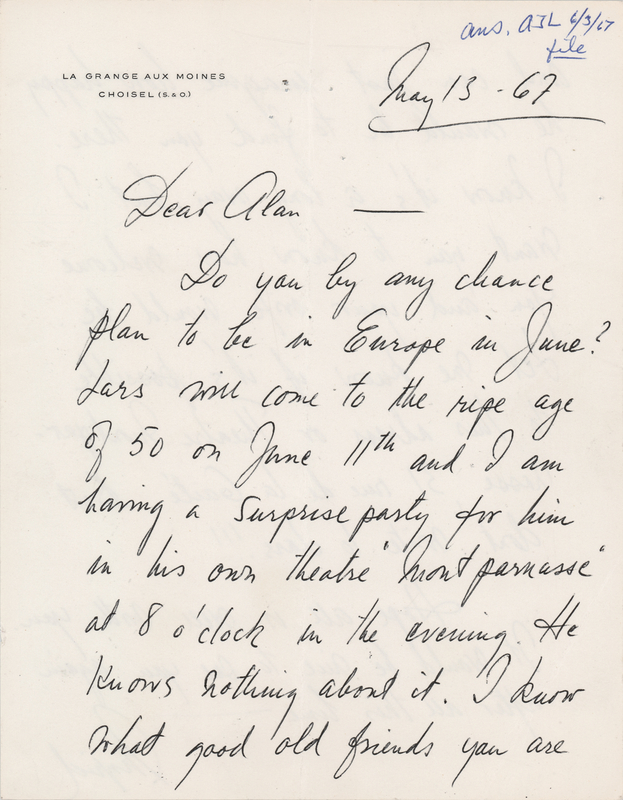 ans. AJL 6/3/67
file
LA GRANGE AUX MOINES
CHOISEL (S. & O.)
May 13 - 67
Dear Alan —
Do you by any chance
plan to be in Europe in June?
Lars will come to the ripe age
of 50 on June 11th and I am
having a surprise party for him
in his own theatre "Montparnasse"
at 8 o'clock in the evening. He
knows nothing about it. I know
what good old friends you are